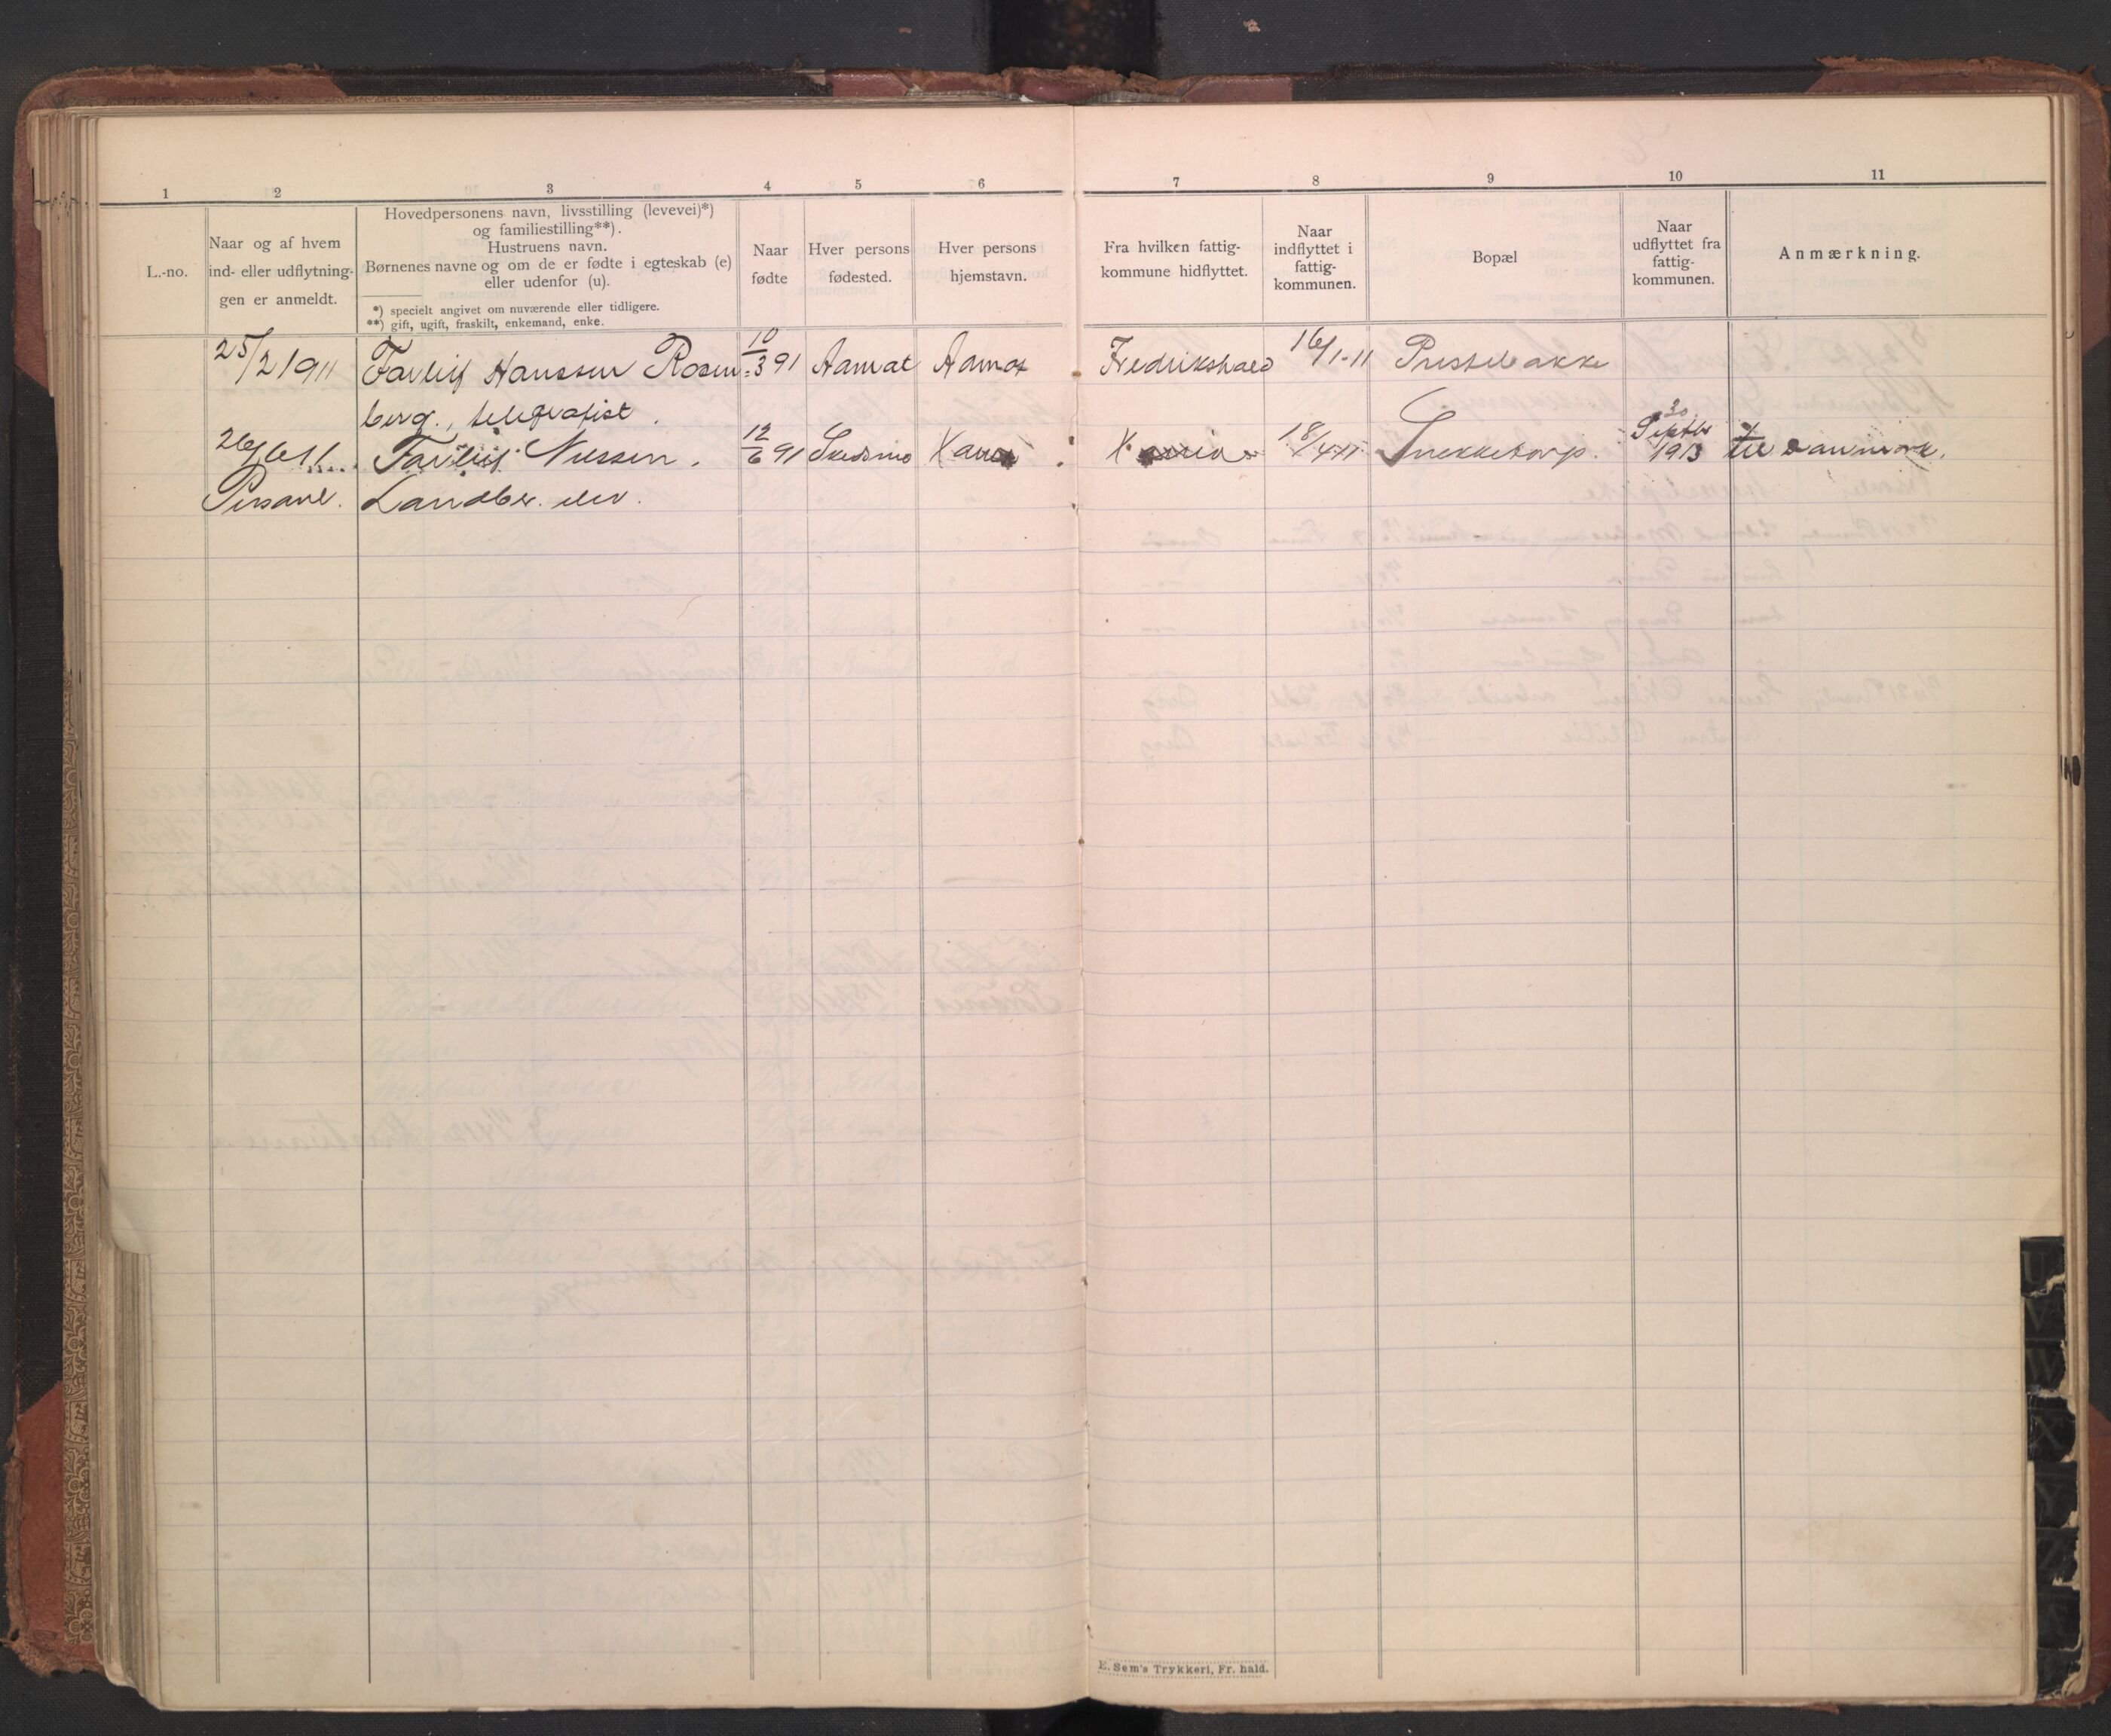 1 2 3 4 5 6 7 8 9 10 11
L.-no.
Naar og af hvem
ind- eller udflytnin-
gen er anmeldt.
Hovedpersonens navn, livsstilling (levevei)*)
og familiestilling**).
Hustruens navn.
Børnenes navne og om de er fødte i egteskab (e)
eller udenfor (u).
*) specielt angivet om nuværende eller tidligere.
**) gift, ugift, fraskilt, enkemand, enke.
Naar
fødte
Hver persons
fødested.
Hver persons
hjemstavn.
Fra hvilken fattig-
kommune hidflyttet.
Naar
indflyttet i
fattig-
kommunen.
Bopæl
Naar
udflyttet fra
fattig-
kommunen.
Anmærkning.
25/2 1911 Torleif Hanssen Rosen- 10/3 91 Aamot Aamot Fredrikshald 16/1-11 Prestebakke
berg., telegrafist.
26/6 11 Torleif Nilssen. 12/6 91 Skedsmo X.ania X.ania 18/4 11 Snekketorp. 30 Septbr 1913 til Danmark.
Personl. Landbr. elev.
E. Sem's Trykkeri, Fr. hald.
U
V
W
X
Y